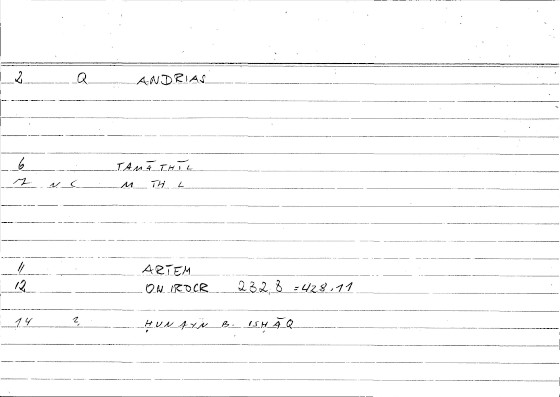 2 Q ANDRIAS
6 TAMĀTHĪL
7 N C M TH L
11 ARTEM
12 ONIROCR 232,8 = 428.11
14 2 ḤUNAYN B. ISḤĀQ